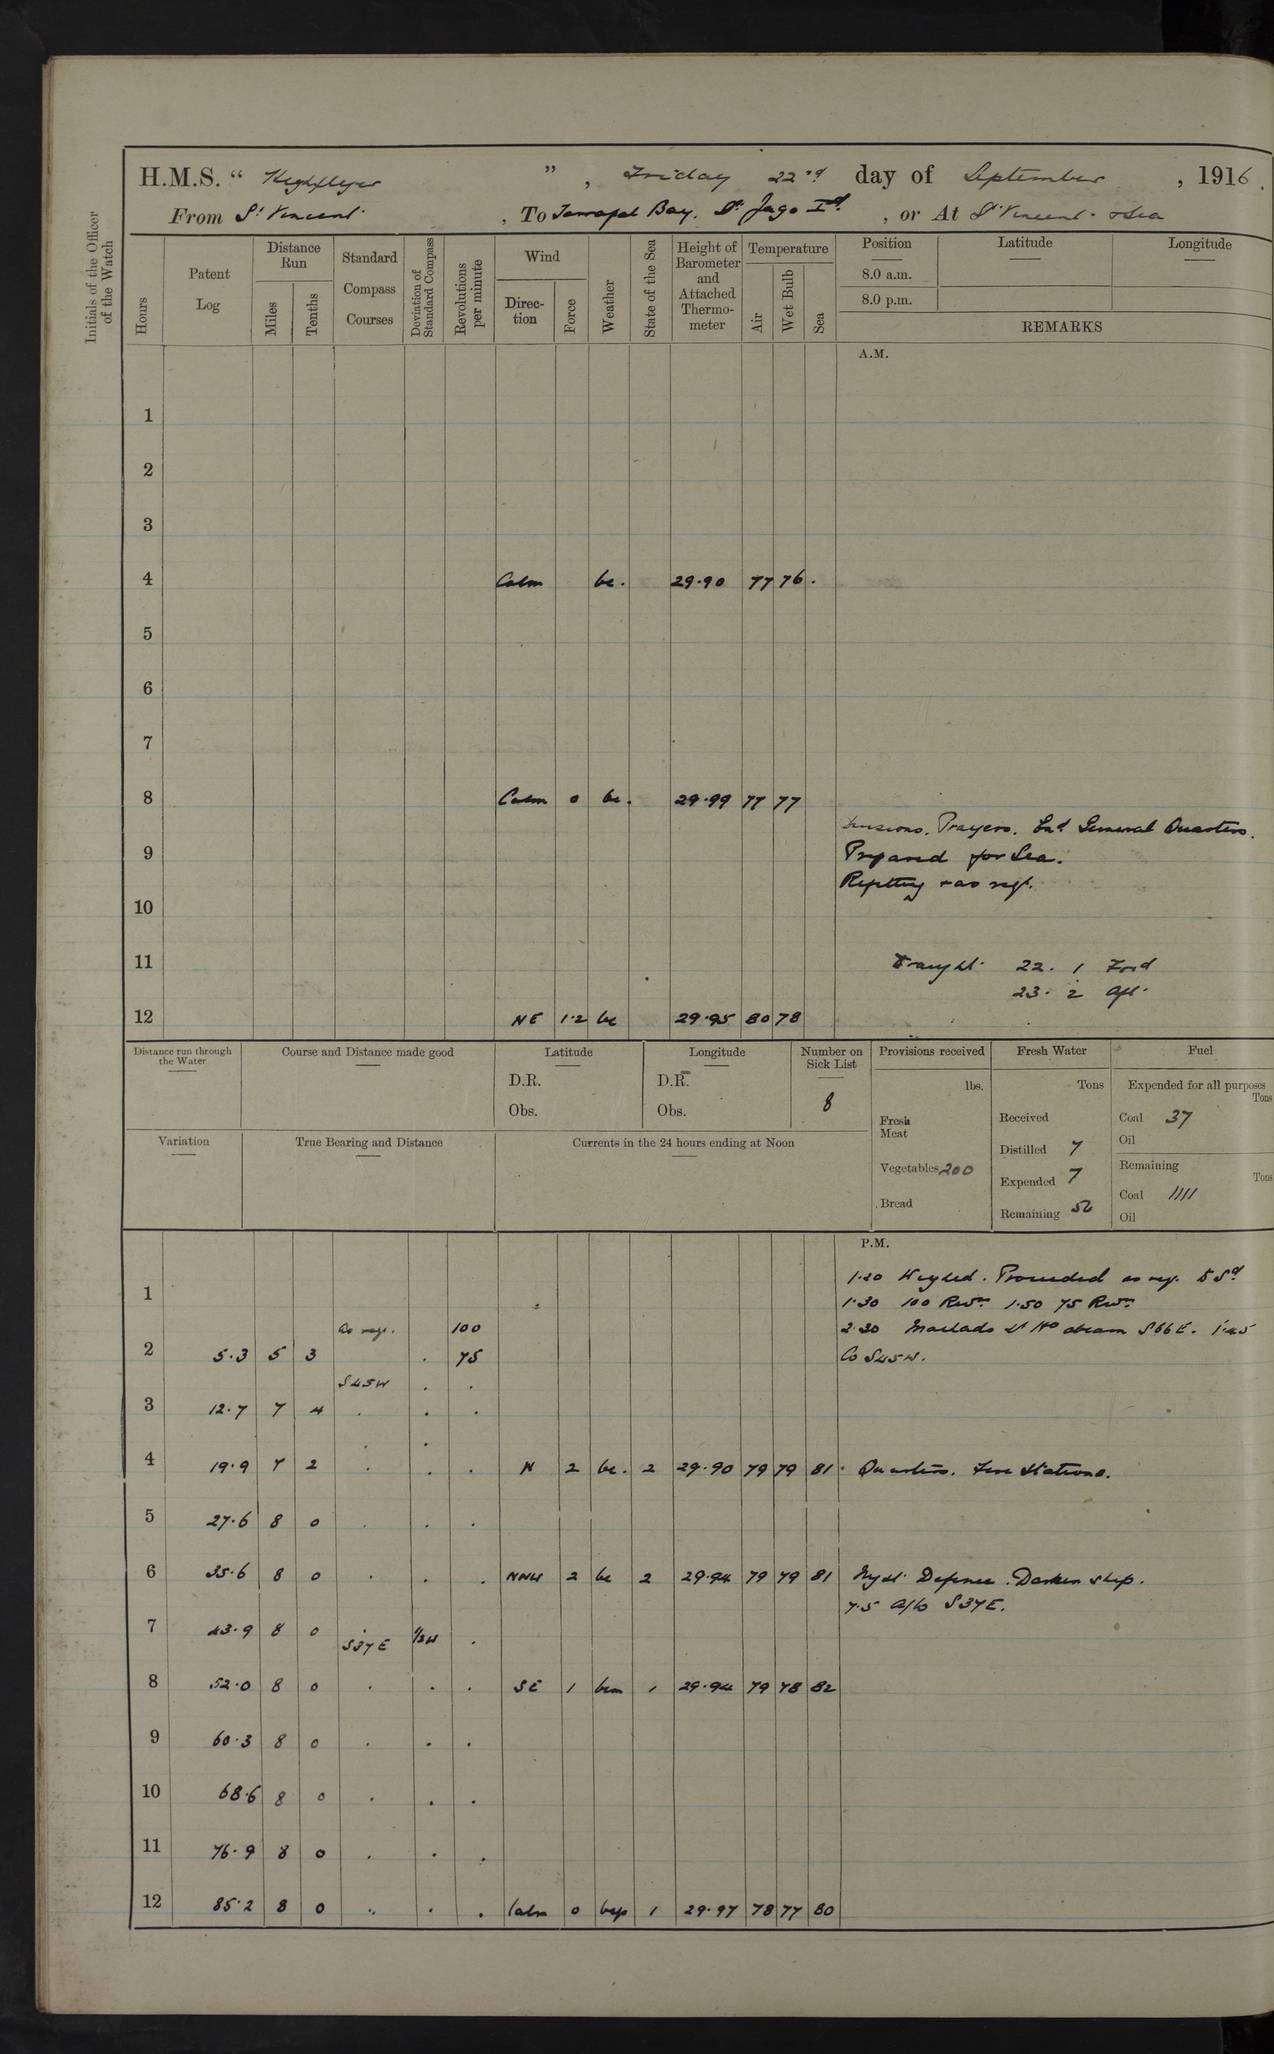 H.M.S. “ Highflyer ” , Friday 22nd day of September , 1916.
From St Vincent. , To Tarrafal Bay. St Jago Id. , or At St Vincent. & Sea
Initials of the Officer of the Watch
Hours
Patent Log
Distance Run
Miles
Tenths
Standard Compass Courses
Deviation of Standard Compass
Revolutions per minute
Wind
Direc-tion
Force
Weather
State of the Sea
Height of Barometer and Attached Thermo-meter
Temperature
Air
Wet Bulb
Sea
Position Latitude Longitude
8.0 a.m.
8.0 p.m.
REMARKS
A.M.
1
2
3
4 Calm bc. 29.90 77 76 .
5
6
7
8 Calm 0 bc. 29.99 77 77
Divisions. Prayers. Exd General Quarters.
9 Prepared for Sea.
Refitting & as req.
10
11 Draught 22. 1 Ford
23. 2 Aft.
12 NE 1.2 bc 29.95 80 78
Distance run through the Water
Course and Distance made good
Latitude
D.R.
Obs.
Longitude
D.R.
Obs.
Number on Sick List
8
Provisions received
lbs.
Fresh Meat
Vegetables 200
Bread
Fresh Water
Tons
Received
Distilled 7
Expended 7
Remaining 52
Fuel
Expended for all purposes
Tons
Coal 37
Oil
Remaining
Tons
Coal 1111
Oil
Variation
True Bearing and Distance
Currents in the 24 hours ending at Noon
P.M.
1.20 Weighed. Proceeded as req. to Sd
1 1.30 100 Revns 1.50 75 Revns
As req. 100 2.20 Machado Lt Ho abeam S66E. 1.45
2 5.3 5 3 . 75 Co S45W.
S45W . .
3 12.7 7 4 . . .
. .
4 19.9 7 2 . . . N 2 bc. 2 29.90 79 79 81 . Quarters. Fire Stations.
5 27.6 8 0 . . .
6 35.6 8 0 . . . NNW 2 bc 2 29.94 79 79 81 Night Defence. Darken ship.
7.5 A/Co S37E.
7 43.9 8 0 . .
S37E 1/2W
8 52.0 8 0 . . . SE 1 bcm 1 29.94 79 78 82
9 60.3 8 0 . . .
10 68.6 8 0 . . .
11 76.9 8 0 . . .
12 85.2 8 0 .. . . Calm 0 bcp 1 29.97 78 77 80